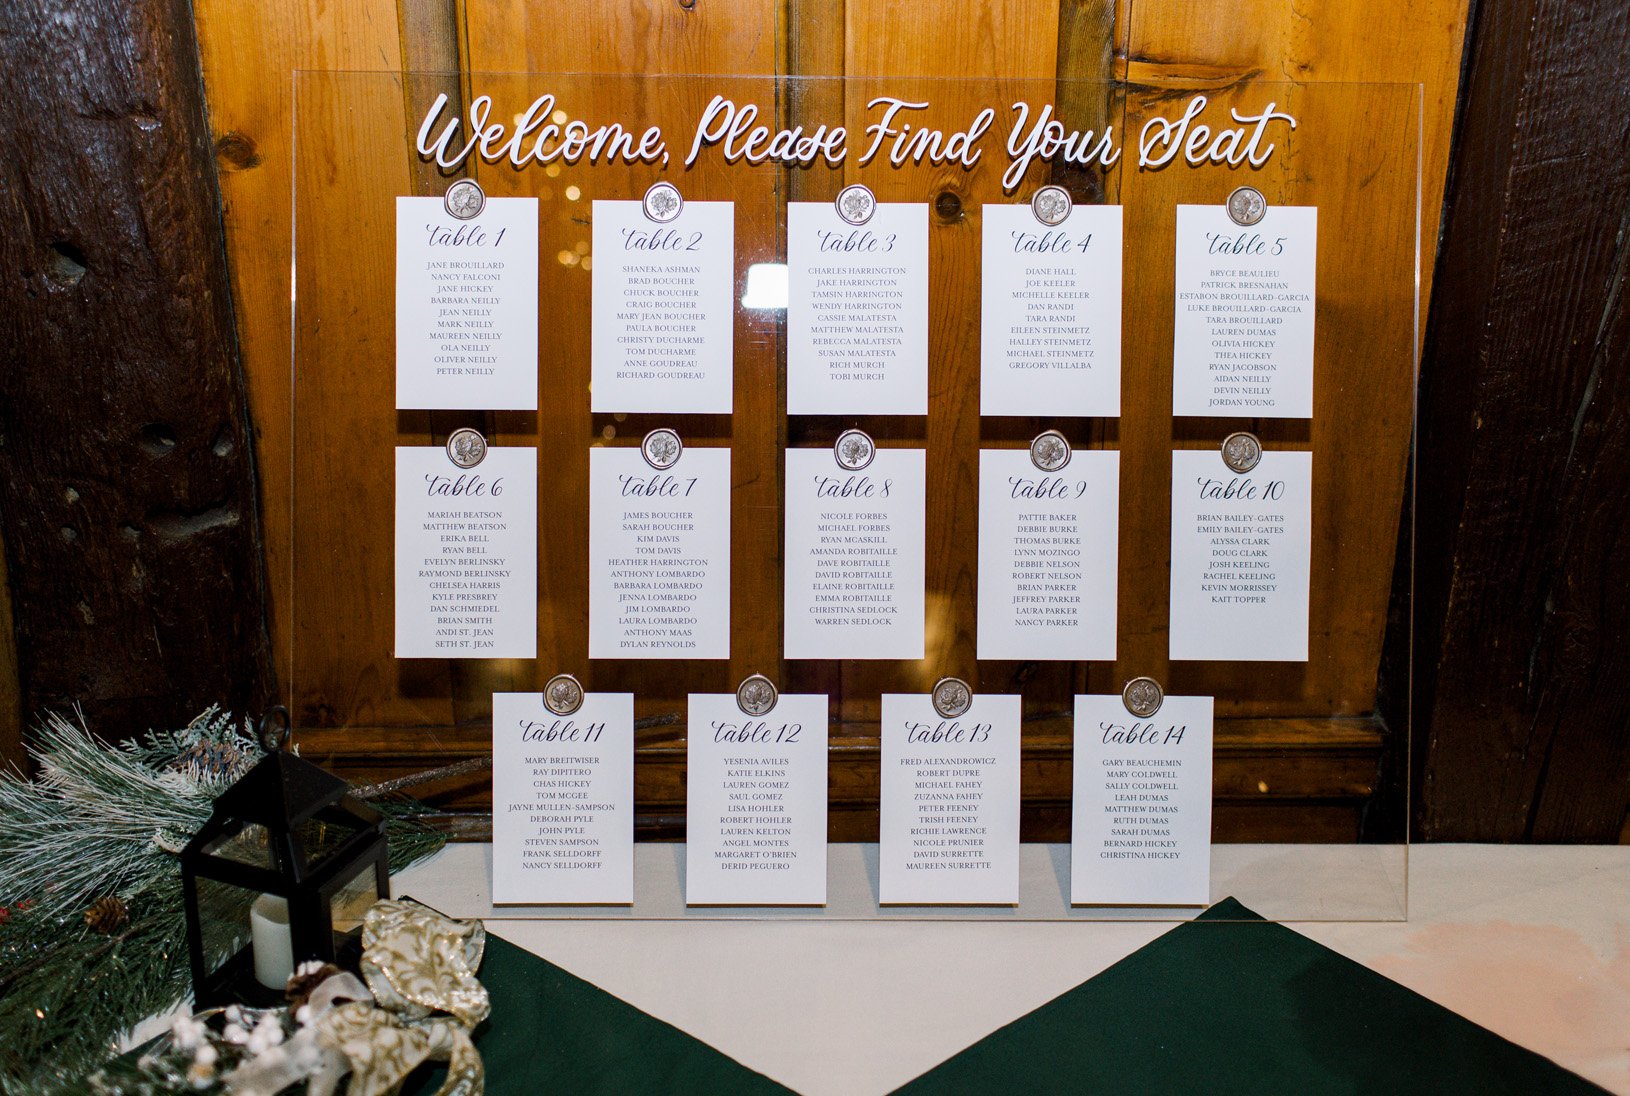 Welcome, Please Find Your Seat
table 1
JANE BROUILLARD
NANCY FALCONI
JANE HICKEY
BARBARA NEILLY
JEAN NEILLY
MARK NEILLY
MAUREEN NEILLY
OLA NEILLY
OLIVER NEILLY
PETER NEILLY
table 2
SHANEKA ASHMAN
BRAD BOUCHER
CHUCK BOUCHER
CRAIG BOUCHER
MARY JEAN BOUCHER
PAULA BOUCHER
CHRISTY DUCHARME
TOM DUCHARME
ANNE GOUDREAU
RICHARD GOUDREAU
table 3
CHARLES HARRINGTON
JAKE HARRINGTON
TAMSIN HARRINGTON
WENDY HARRINGTON
CASSIE MALATESTA
MATTHEW MALATESTA
REBECCA MALATESTA
SUSAN MALATESTA
RICH MURCH
TOBI MURCH
table 4
DIANE HALL
JOE KEELER
MICHELLE KEELER
DAN RANDI
TARA RANDI
EILEEN STEINMETZ
HALLEY STEINMETZ
MICHAEL STEINMETZ
GREGORY VILLALBA
table 5
BRYCE BEAULIEU
PATRICK BRESNAHAN
ESTABON BROUILLARD-GARCIA
LUKE BROUILLARD-GARCIA
TARA BROUILLARD
LAUREN DUMAS
OLIVIA HICKEY
THEA HICKEY
RYAN JACOBSON
AIDAN NEILLY
DEVIN NEILLY
JORDAN YOUNG
table 6
MARIAH BEATSON
MATTHEW BEATSON
ERIKA BELL
RYAN BELL
EVELYN BERLINSKY
RAYMOND BERLINSKY
CHELSEA HARRIS
KYLE PRESBREY
DAN SCHMIEDEL
BRIAN SMITH
ANDI ST. JEAN
SETH ST. JEAN
table 7
JAMES BOUCHER
SARAH BOUCHER
KIM DAVIS
TOM DAVIS
HEATHER HARRINGTON
ANTHONY LOMBARDO
BARBARA LOMBARDO
JENNA LOMBARDO
JIM LOMBARDO
LAURA LOMBARDO
ANTHONY MAAS
DYLAN REYNOLDS
table 8
NICOLE FORBES
MICHAEL FORBES
RYAN MCASKILL
AMANDA ROBITAILLE
DAVE ROBITAILLE
DAVID ROBITAILLE
ELAINE ROBITAILLE
EMMA ROBITAILLE
CHRISTINA SEDLOCK
WARREN SEDLOCK
table 9
PATTIE BAKER
DEBBIE BURKE
THOMAS BURKE
LYNN MOZINGO
DEBBIE NELSON
ROBERT NELSON
BRIAN PARKER
JEFFREY PARKER
LAURA PARKER
NANCY PARKER
table 10
BRIAN BAILEY-GATES
EMILY BAILEY-GATES
ALYSSA CLARK
DOUG CLARK
JOSH KEELING
RACHEL KEELING
KEVIN MORRISSEY
KAIT TOPPER
table 11
MARY BREITWISER
RAY DIPITERO
CHAS HICKEY
TOM MCGEE
JAYNE MULLEN-SAMPSON
DEBORAH PYLE
JOHN PYLE
STEVEN SAMPSON
FRANK SELLDORFF
NANCY SELLDORFF
table 12
YESENIA AVILES
KATIE ELKINS
LAUREN GOMEZ
SAUL GOMEZ
LISA HOHLER
ROBERT HOHLER
LAUREN KELTON
ANGEL MONTES
MARGARET O'BRIEN
DERID PEGUERO
table 13
FRED ALEXANDROWICZ
ROBERT DUPRE
MICHAEL FAHEY
ZUZANNA FAHEY
PETER FEENEY
TRISH FEENEY
RICHIE LAWRENCE
NICOLE PRUNIER
DAVID SURRETTE
MAUREEN SURRETTE
table 14
GARY BEAUCHEMIN
MARY COLDWELL
SALLY COLDWELL
LEAH DUMAS
MATTHEW DUMAS
RUTH DUMAS
SARAH DUMAS
BERNARD HICKEY
CHRISTINA HICKEY